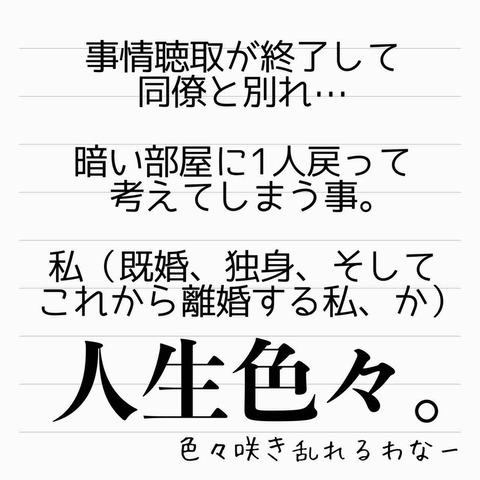 事情聴取が終了して
同僚と別れ…
暗い部屋に1人戻って
考えてしまう事。
私（既婚、独身、そして
これから離婚する私、か）
人生色々。
色々咲き乱れるわなー